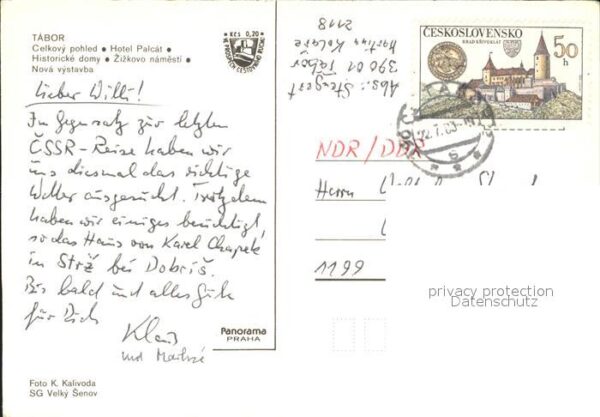 TÁBOR
Celkový pohled • Hotel Palcát •
Historické domy • Žižkovo náměstí •
Nová výstavba
KČS 0,20
VE PROSPĚCH CESTOVNÍHO RUCHU
Lieber Willi!
Im Gegensatz zur letzten
ČSSR-Reise haben wir
uns diesmal das richtige
Wetter ausgesucht. Trotzdem
haben wir einiges besichtigt,
so das Haus von Karel Chapek
in Strž bei Dobřiš.
Bis bald und alles Gute
für Dich
Klaus
und
Panorama
PRAHA
Foto K. Kalivoda
SG Velký Šenov
Abs.:
390 01 Tábor
2118
ČESKOSLOVENSKO
HRAD KŘIVOKLÁT
50
h
22.7.83
NDR/DDR
Herrn
1199
privacy protection
Datenschutz